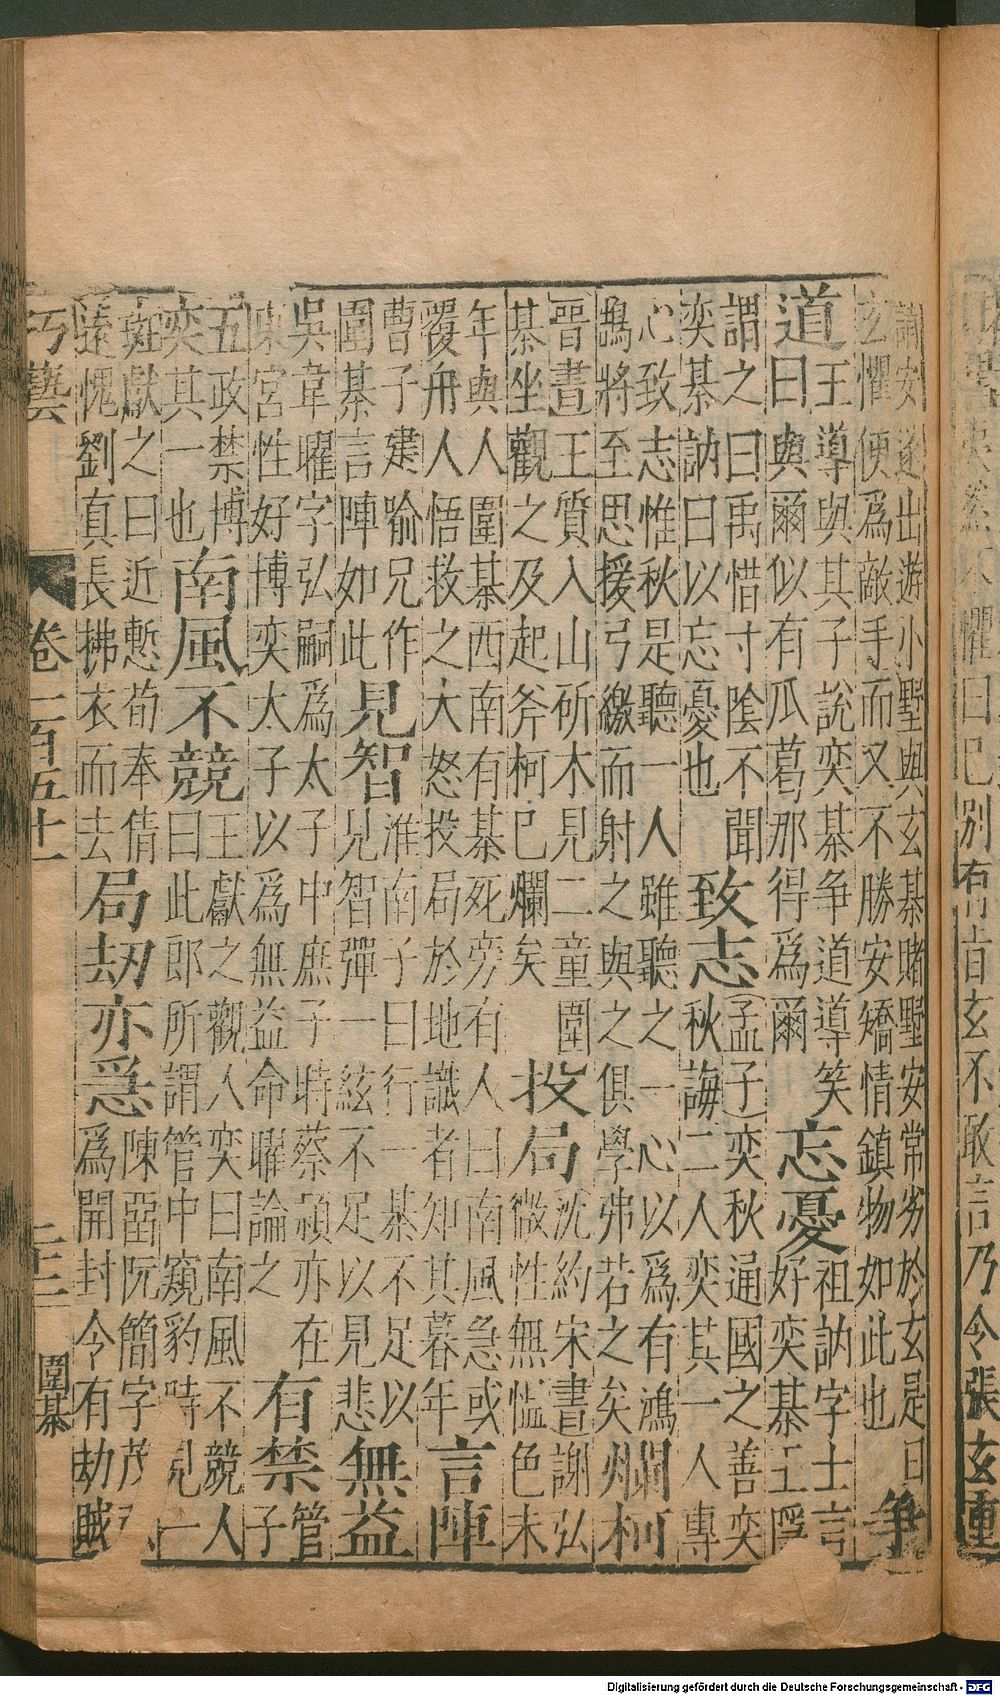 懼曰已別有旨玄不敢言乃令張玄重
謝安遂出游小墅與玄棊賭墅安常劣於玄是日
玄懼便爲敵手而又不勝安矯情鎮物如此也
争道
王導與其子說奕棊争道導笑
曰與爾似有瓜葛那得爲爾
忘憂
祖訥字士言
好奕棊王隱
謂之曰禹惜寸陰不聞
奕棊訥曰以忘憂也
致志
(孟子)奕秋通國之善奕
秋誨二人奕其一人專
心致志惟秋是聽一人雖聽之一心以爲有鴻
鵠將至思援弓繳而射之與之俱學弗若之矣
爛柯
晉書王質入山斫木見二童圍
棊坐觀之及起斧柯已爛矣
投局
沈約宋書謝弘
微性無慍色末
年與人圍棊西南有棊死旁有人曰南風急或
覆舟人悟救之大怒投局於地識者知其暮年
言陣
曹子建喻兄作
圍棊言陣如此
見智
淮南子曰行一棊不足以
見智彈一絃不足以見悲
無益
吳韋曜字弘嗣爲太子中庶子時蔡頴亦在
東宮性好博奕太子以爲無益命曜論之
有禁
管
子
五政禁博
奕其一也
南風不競
王獻之觀人奕曰南風不競人
曰此郎所謂管中窺豹時見一
斑獻之曰近慙荀奉倩
遠愧劉真長拂衣而去
局劫亦急
陳畱阮簡字茂
爲開封令有劫賊
巧藝 卷一百五十一 二十二 圍棊
Digitalisierung gefördert durch die Deutsche Forschungsgemeinschaft - DFG